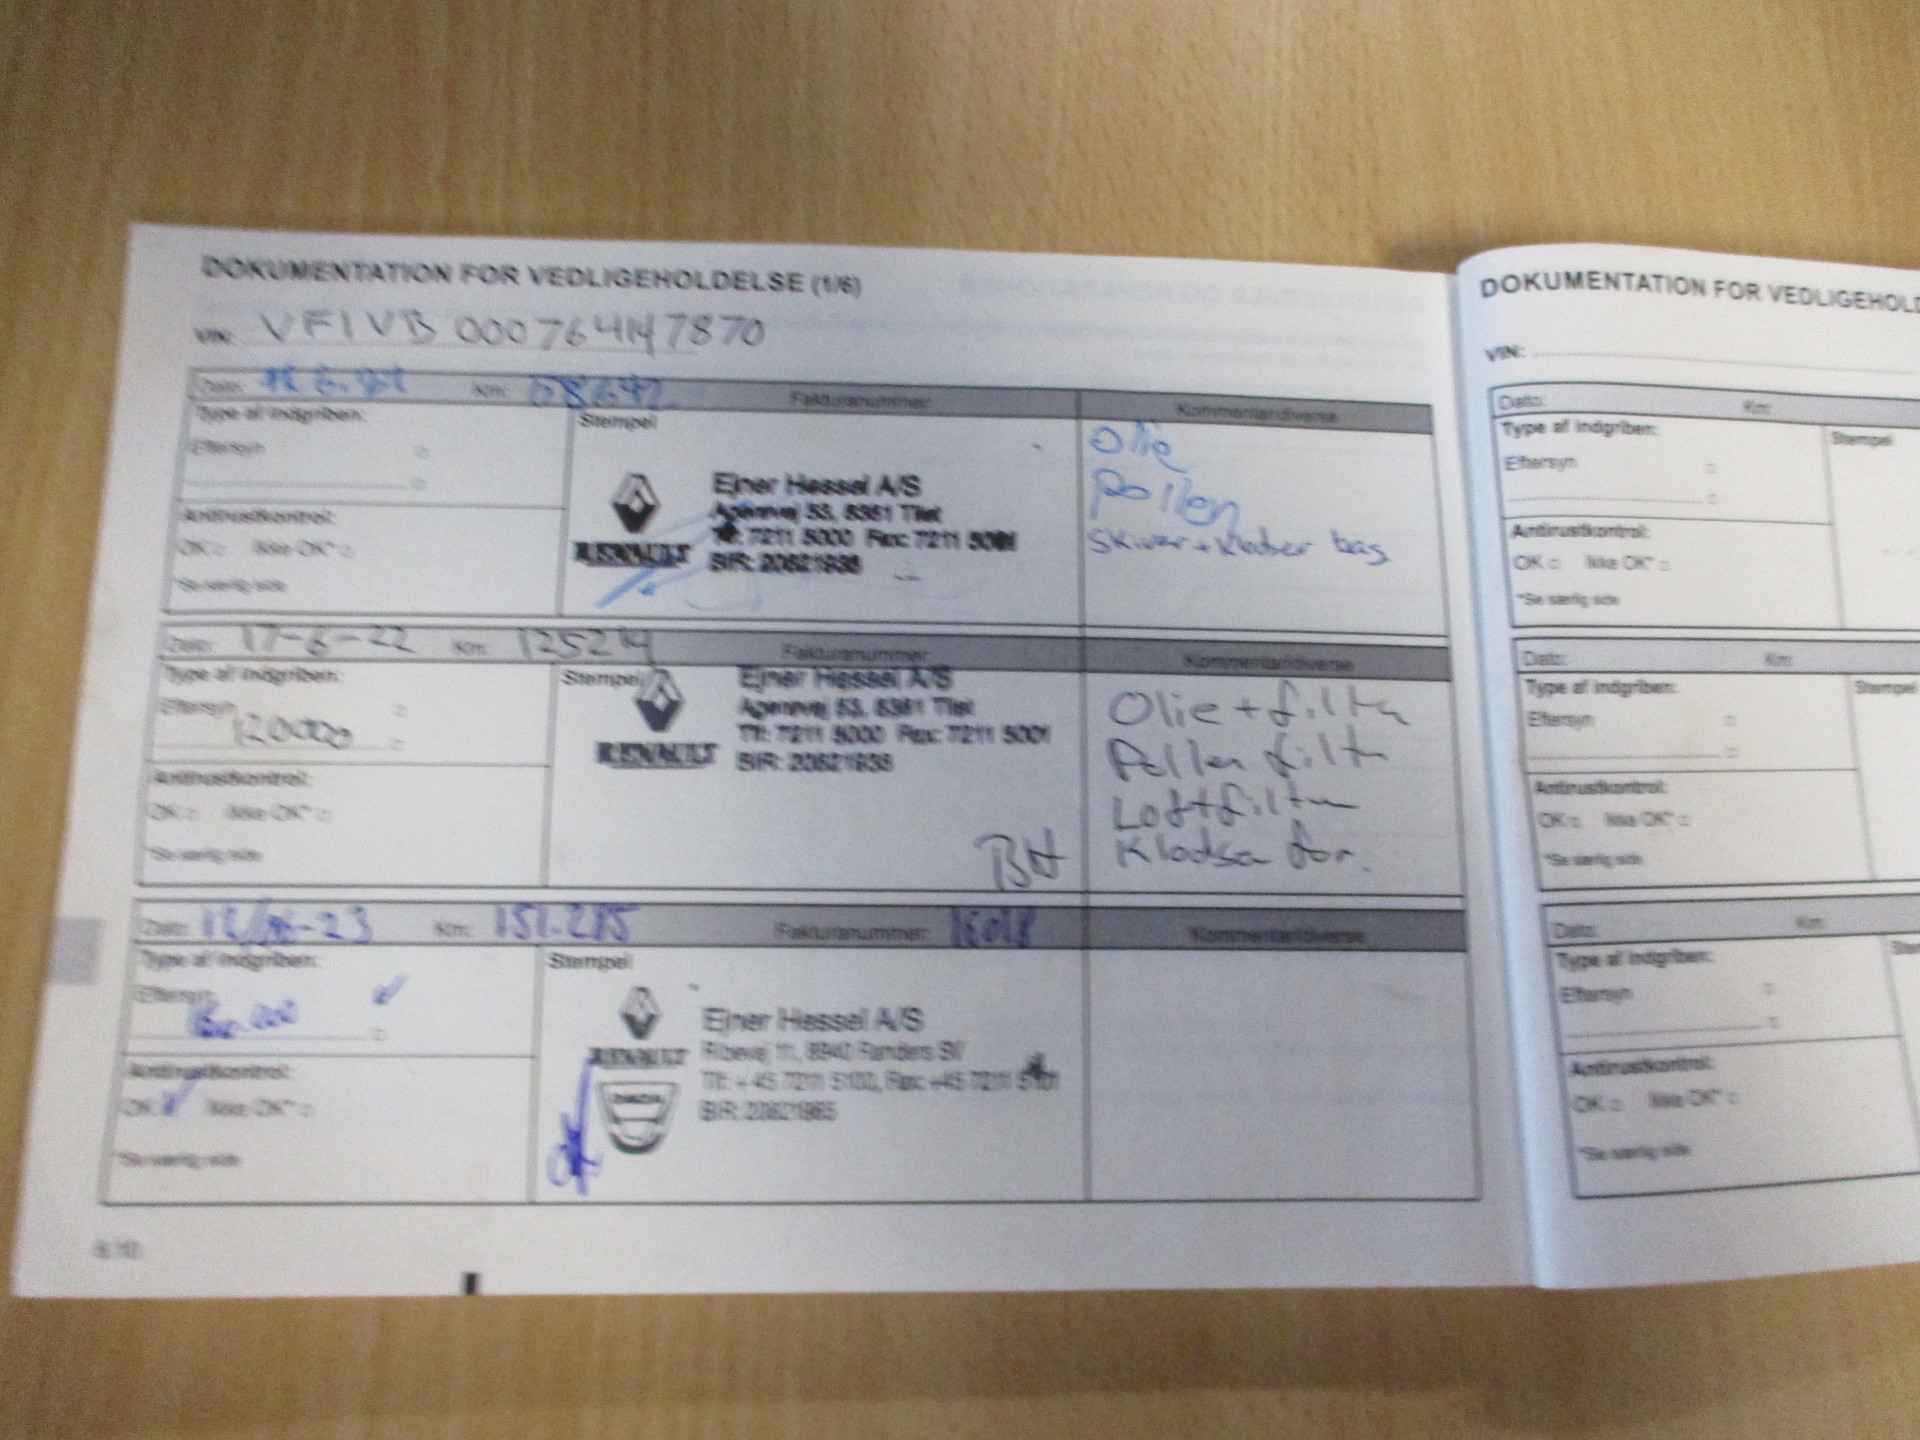 DOKUMENTATION FOR VEDLIGEHOLDELSE (1/6)
VIN:
Dato: Km: Fakturanummer: Kommentar/diverse
Type af indgriben:
Eftersyn
Stempel
Antirustkontrol:
OK Ikke OK*
*Se særlig side
Ejner Hessel A/S
53, 8381 Tilst
Tlf: 7211 5000 Fax: 7211 5001
RENAULT
BIR: 20821938
Olie
Pollen
Skiver + klodser bag
Dato: 17-6-22 Km: 125214 Fakturanummer: Kommentar/diverse
Type af indgriben:
Eftersyn
120000
Stempel
Antirustkontrol:
OK Ikke OK*
*Se særlig side
Ejner Hessel A/S
53, 8381 Tilst
Tlf: 7211 5000 Fax: 7211 5001
RENAULT
BIR: 20821938
BH
Olie + filter
Pollen filter
Luftfilter
Klodser for.
Dato: Km: 151.215 Fakturanummer: Kommentar/diverse
Type af indgriben:
Eftersyn
Stempel
Antirustkontrol:
OK Ikke OK*
*Se særlig side
Ejner Hessel A/S
Ribevej 11, 8940 Randers SV
Tlf: +45 7211 5100, Fax: +45 7211 5101
RENAULT
DACIA
DOKUMENTATION FOR VEDLIGEHOLD
VIN:
Dato: Km:
Type af indgriben:
Eftersyn
Stempel
Antirustkontrol:
OK Ikke OK*
*Se særlig side
Dato: Km:
Type af indgriben:
Eftersyn
Stempel
Antirustkontrol:
OK Ikke OK*
*Se særlig side
Dato: Km:
Type af indgriben:
Eftersyn
Antirustkontrol:
OK Ikke OK*
*Se særlig side